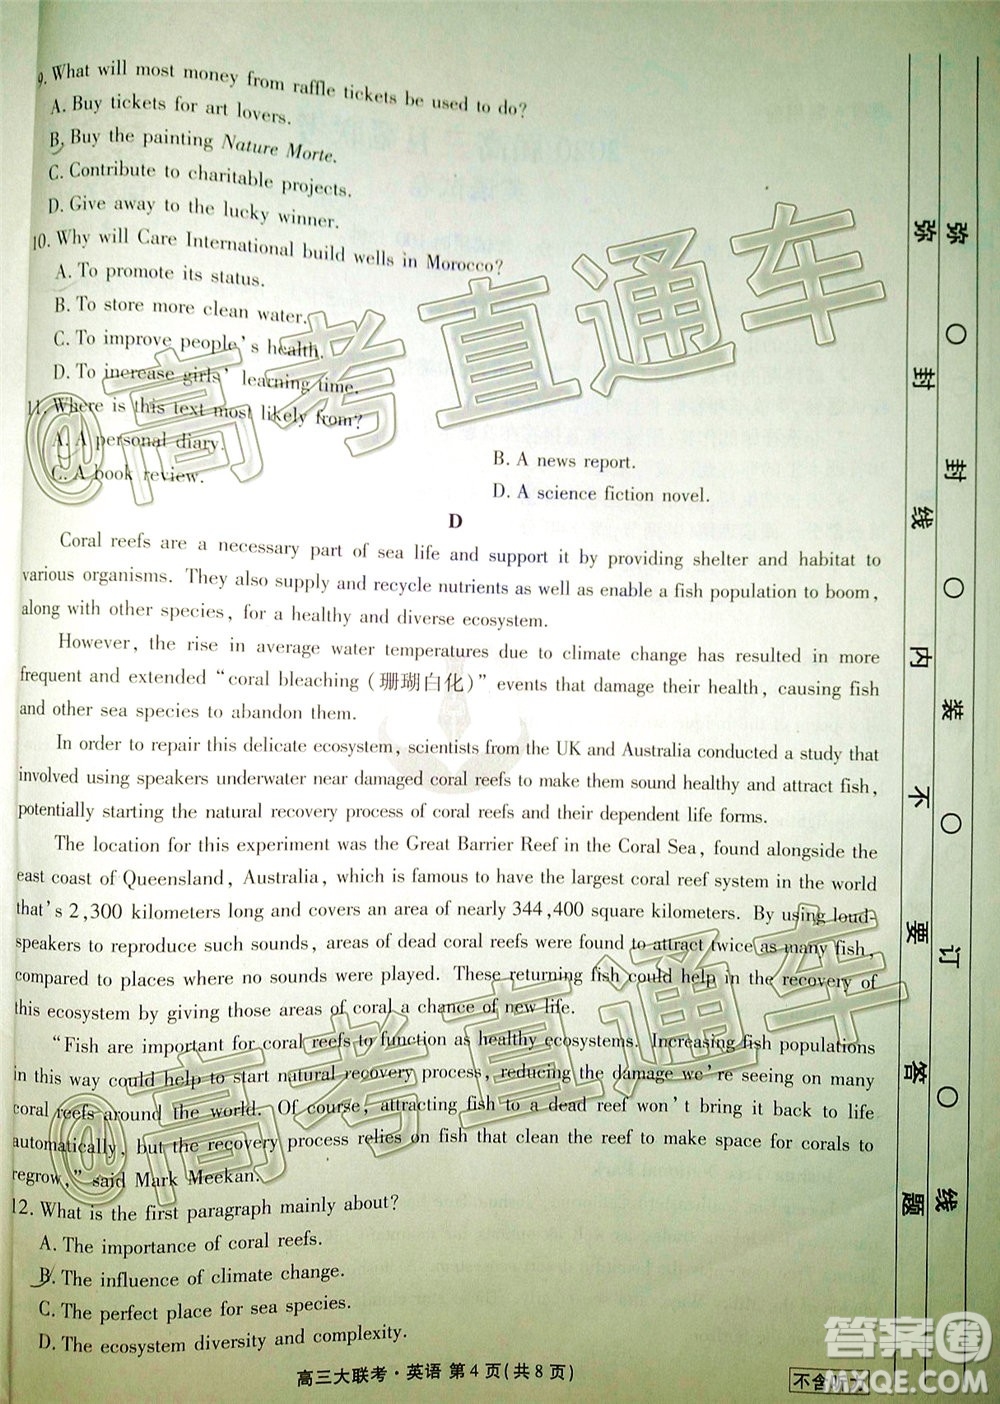 9. What will most money from raffle tickets be used to do?
A. Buy tickets for art lovers.
B. Buy the painting Nature Morte.
C. Contribute to charitable projects.
D. Give away to the lucky winner.
10. Why will Care International build wells in Morocco?
A. To promote its status.
B. To store more clean water.
C. To improve people's health.
D. To increase girls' learning time.
11. Where is this text most likely from?
A. A personal diary.
B. A news report.
C. A book review.
D. A science fiction novel.
D
Coral reefs are a necessary part of sea life and support it by providing shelter and habitat to
various organisms. They also supply and recycle nutrients as well as enable a fish population to boom,
along with other species, for a healthy and diverse ecosystem.
However, the rise in average water temperatures due to climate change has resulted in more
frequent and extended "coral bleaching (珊瑚白化)" events that damage their health, causing fish
and other sea species to abandon them.
In order to repair this delicate ecosystem, scientists from the UK and Australia conducted a study that
involved using speakers underwater near damaged coral reefs to make them sound healthy and attract fish,
potentially starting the natural recovery process of coral reefs and their dependent life forms.
The location for this experiment was the Great Barrier Reef in the Coral Sea, found alongside the
east coast of Queensland, Australia, which is famous to have the largest coral reef system in the world
that's 2,300 kilometers long and covers an area of nearly 344,400 square kilometers. By using loud-
speakers to reproduce such sounds, areas of dead coral reefs were found to attract twice as many fish,
compared to places where no sounds were played. These returning fish could help in the recovery of
this ecosystem by giving those areas of coral a chance of new life.
"Fish are important for coral reefs to function as healthy ecosystems. Increasing fish populations
in this way could help to start natural recovery process, reducing the damage we're seeing on many
coral reefs around the world. Of course, attracting fish to a dead reef won't bring it back to life
automatically, but the recovery process relies on fish that clean the reef to make space for corals to
regrow," said Mark Meekan.
12. What is the first paragraph mainly about?
A. The importance of coral reefs.
B. The influence of climate change.
C. The perfect place for sea species.
D. The ecosystem diversity and complexity.
高三大联考·英语 第4页(共8页)
不含听力
弥封线内不要答题
弥○封○装○订○线
@高考直通车
@高考直通车
答案圈
MXQE.COM